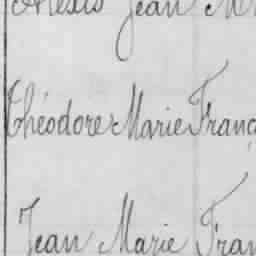 Jean
Théodore Marie Franç
Jean Marie Fran